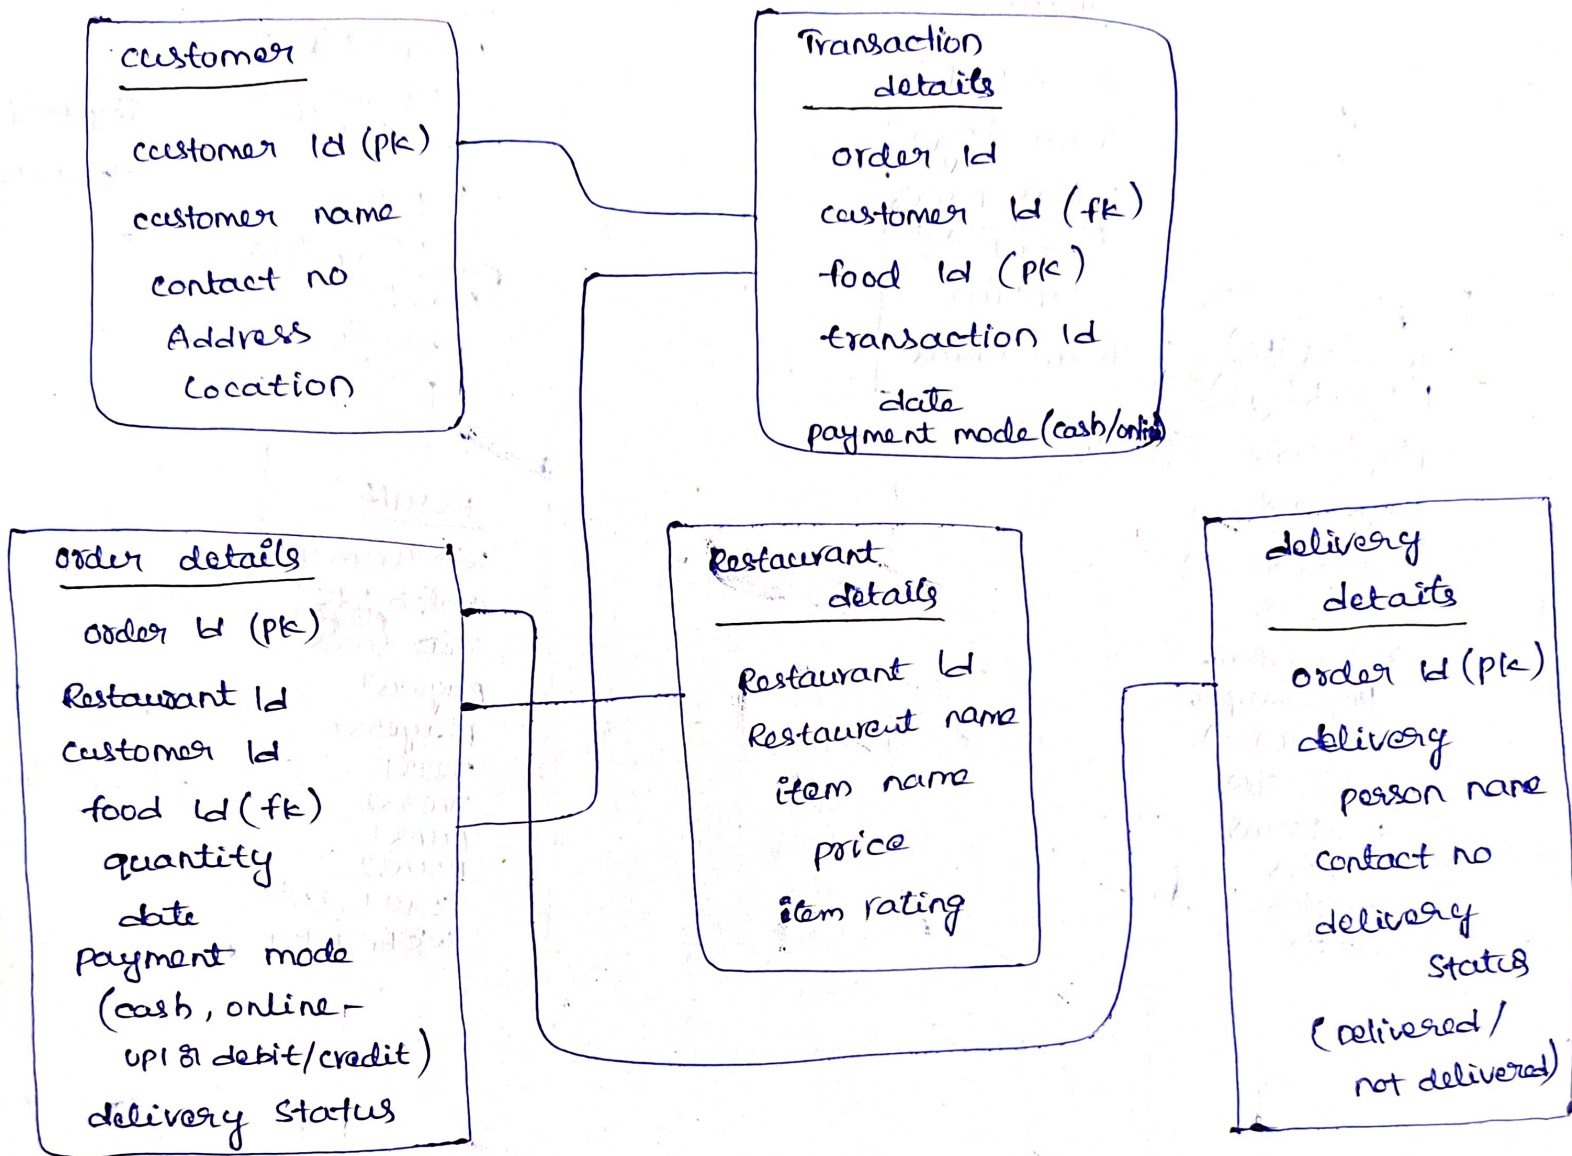 customer
customer Id (pk)
customer name
contact no
Address
Location
Transaction
details
order Id
customer Id (fk)
food Id (pk)
transaction Id
date
payment mode (cash/online)
order details
order Id (pk)
Restaurant Id
customer Id
food Id (fk)
quantity
date
payment mode
(cash, online-
UPI or debit/credit)
delivery status
Restaurant
details
Restaurant Id
Restaurent name
item name
price
item rating
delivery
details
order Id (pk)
delivery
person name
contact no
delivery
status
(Delivered/
not delivered)